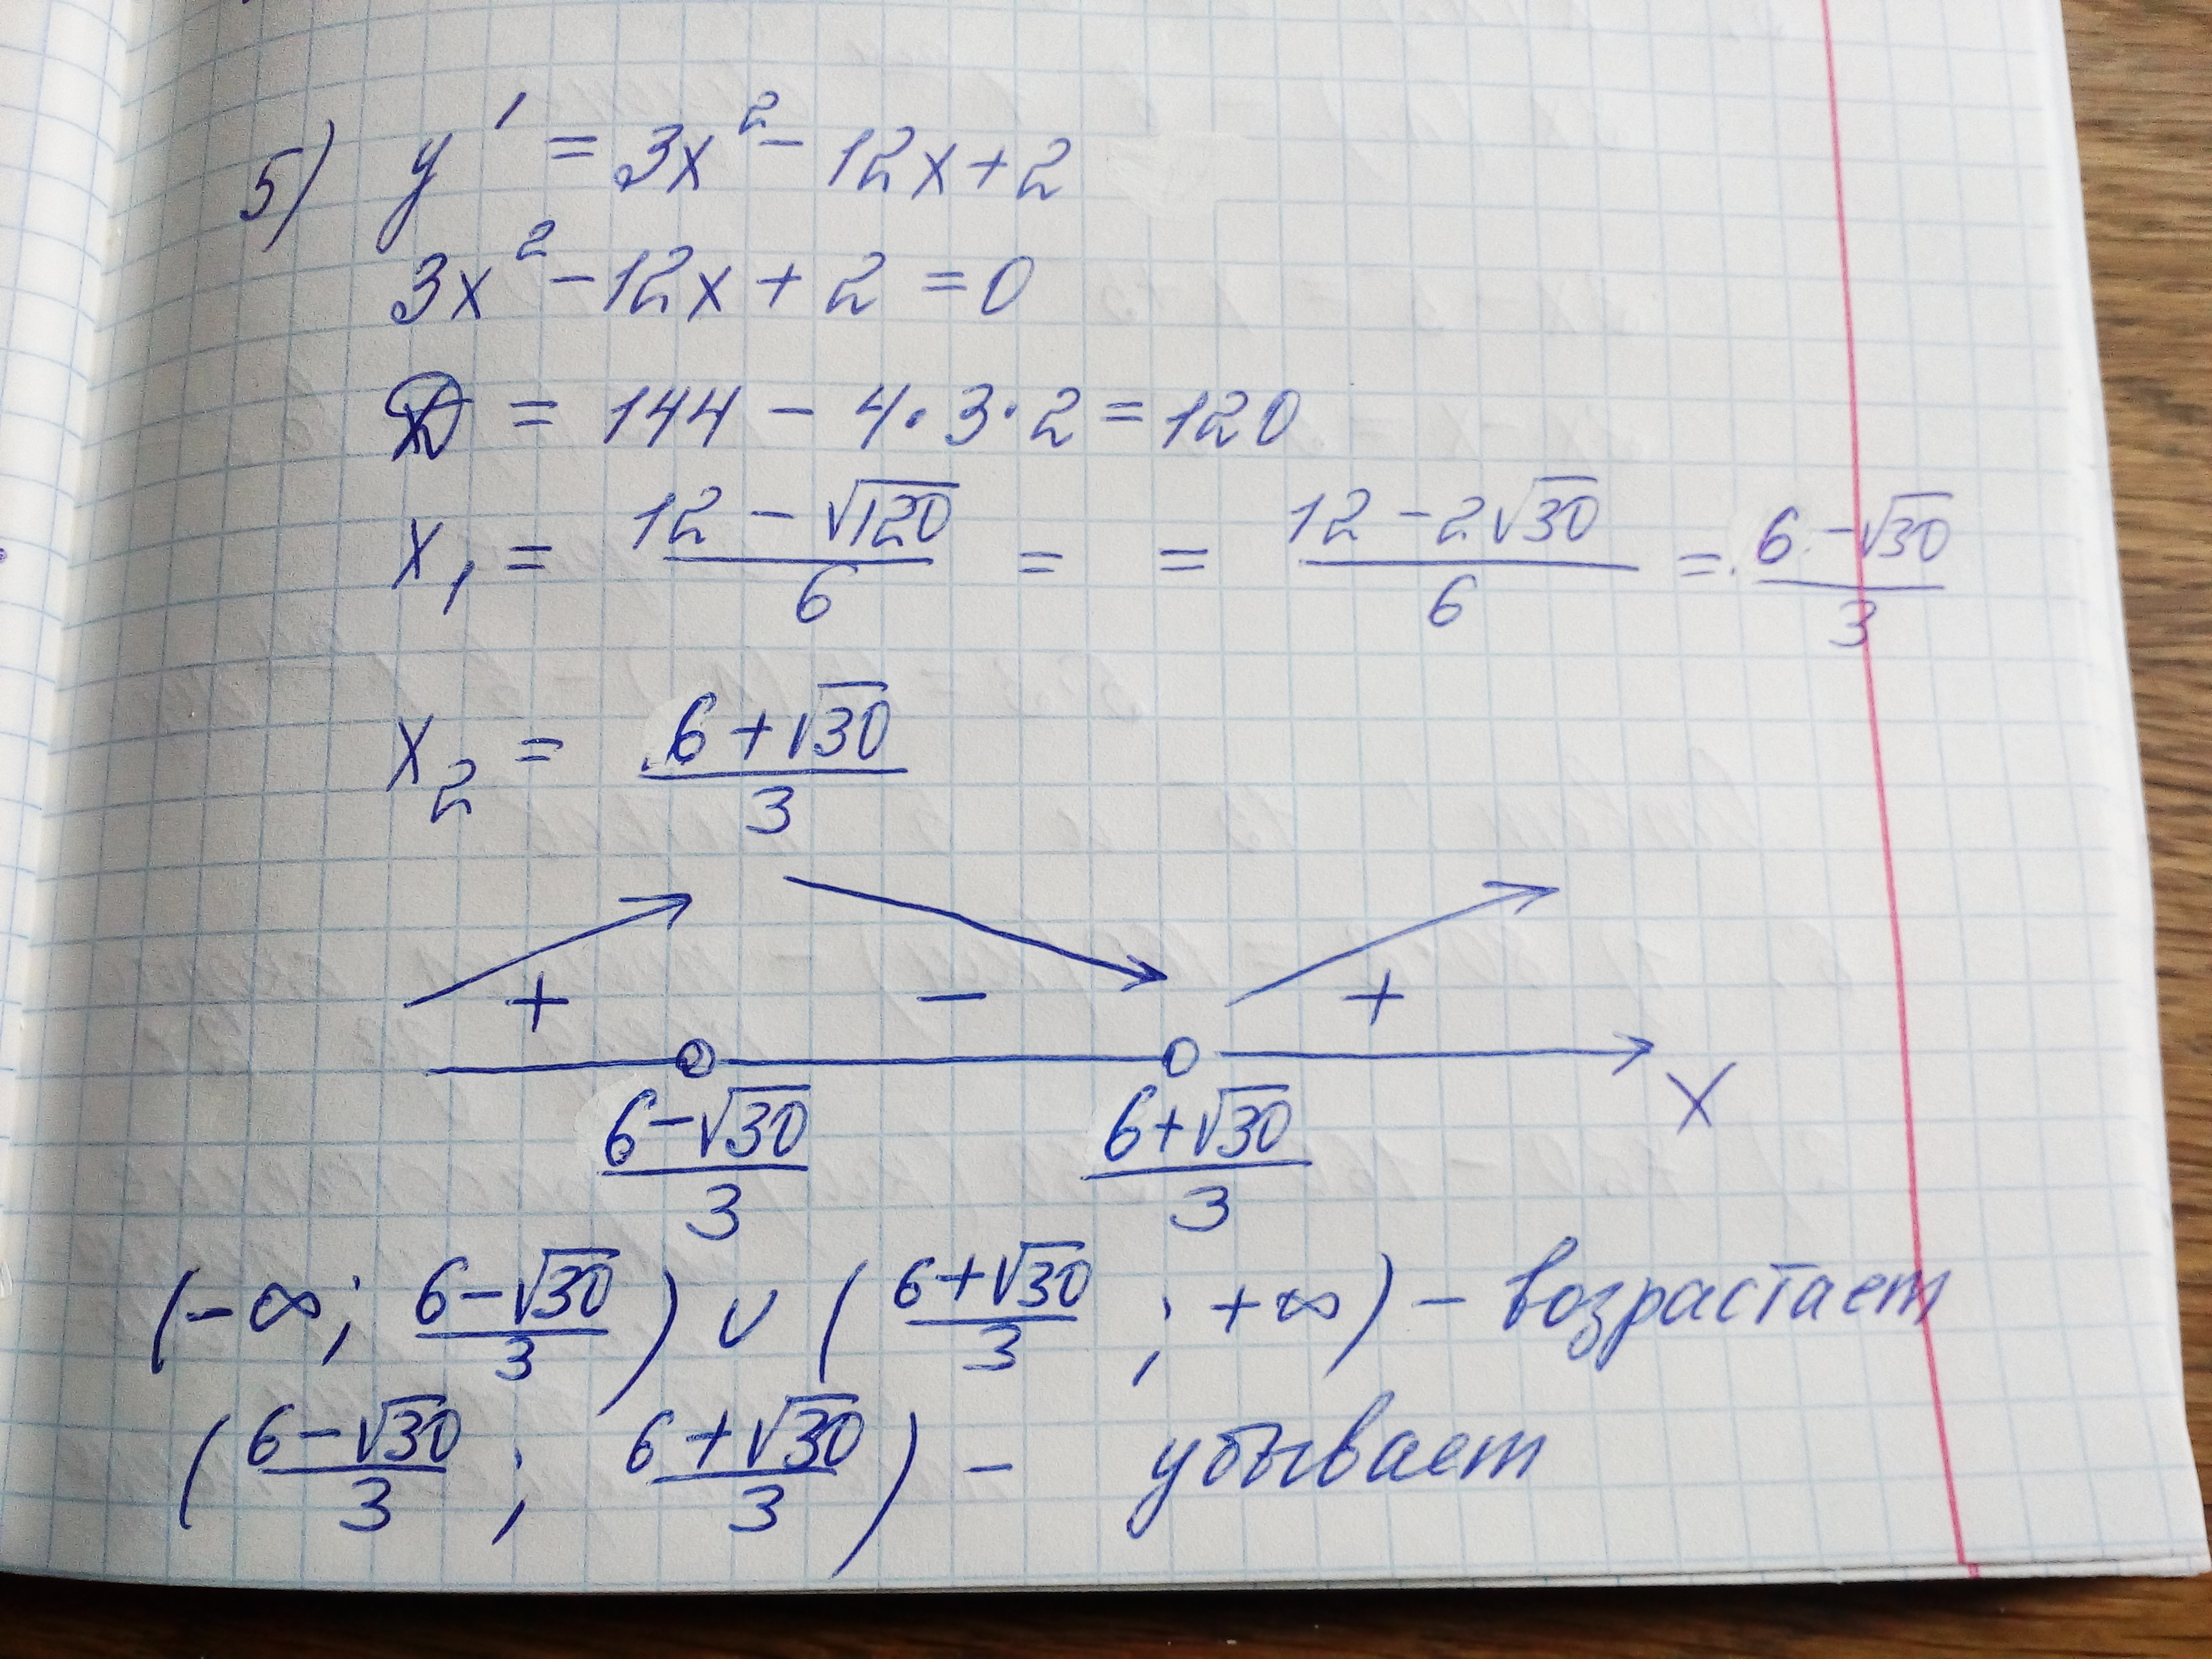 5) y' = 3x² - 12x + 2
3x² - 12x + 2 = 0
D = 144 - 4·3·2 = 120
x₁ = (12 - √120)/6 = = (12 - 2√30)/6 = (6 - √30)/3
x₂ = (6 + √30)/3
+ - +
(6 - √30)/3 (6 + √30)/3 x
(-∞; (6 - √30)/3) ∪ ((6 + √30)/3; +∞) - возрастает
((6 - √30)/3; (6 + √30)/3) - убывает